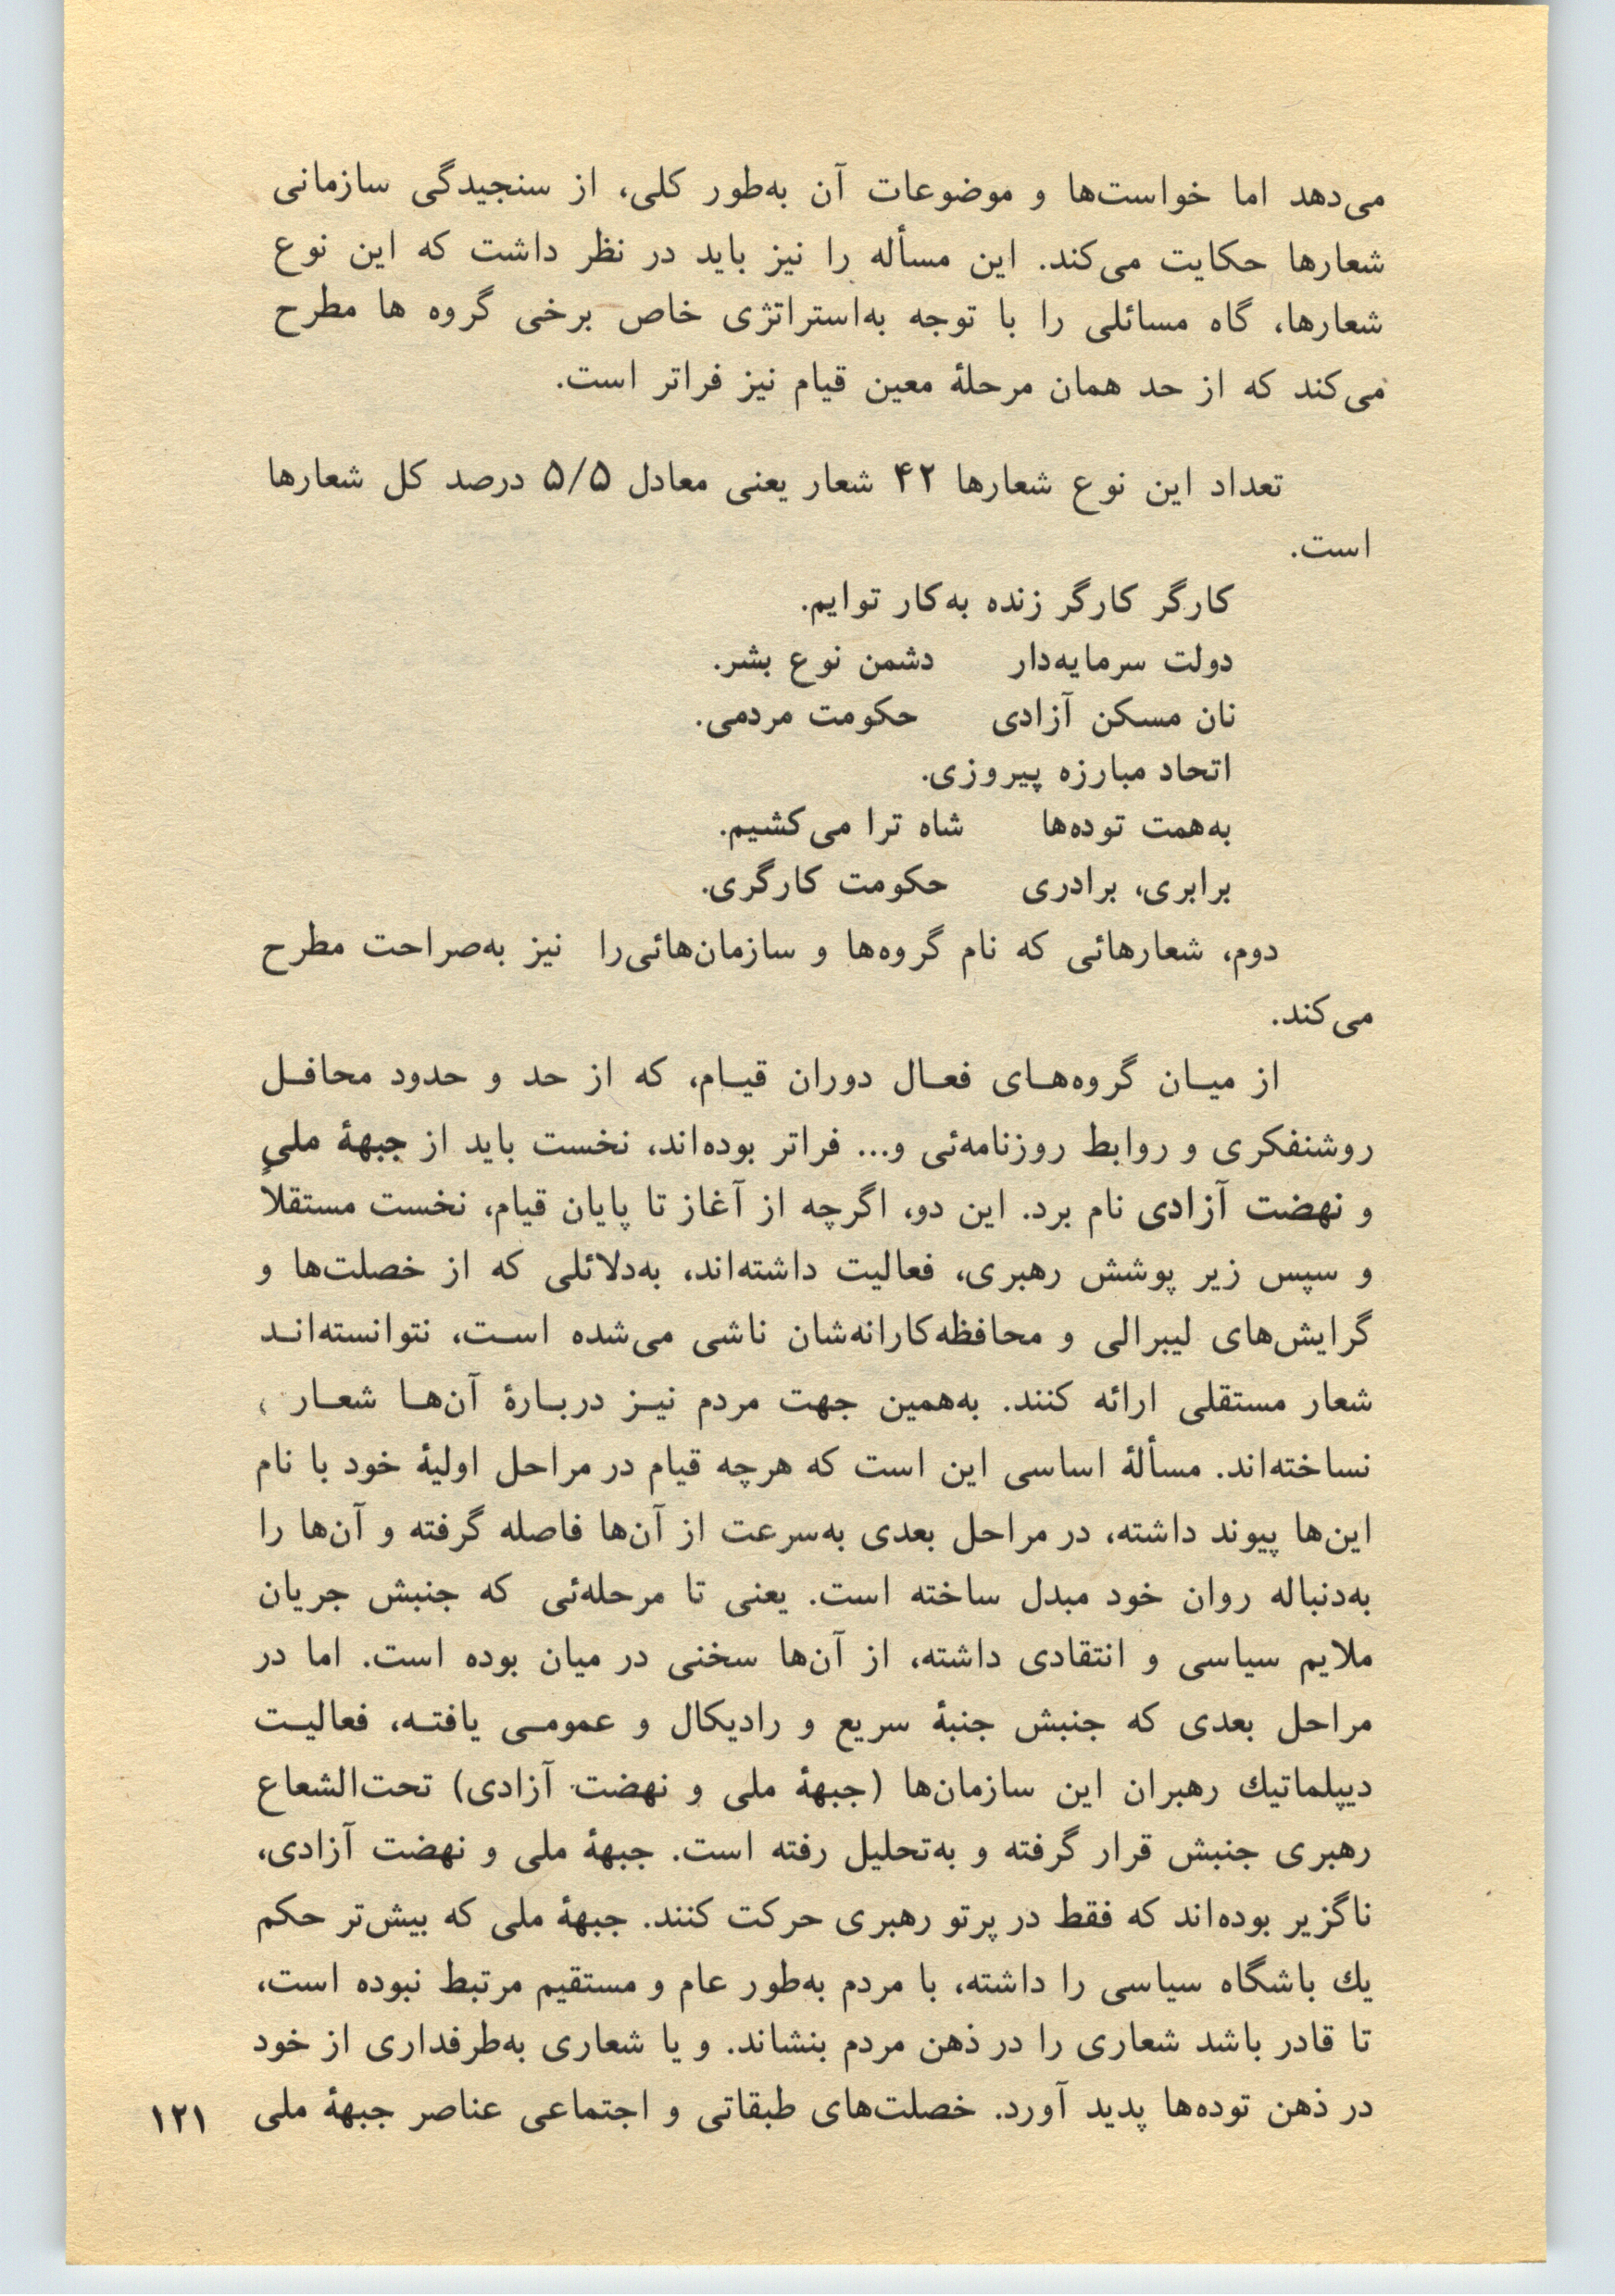 می‌دهد اما خواست‌ها و موضوعات آن به‌طور کلی، از سنجیدگی سازمانی
شعارها حکایت می‌کند. این مسأله را نیز باید در نظر داشت که این نوع
شعارها، گاه مسائلی را با توجه به‌استراتژی خاص برخی گروه ها مطرح
می‌کند که از حد همان مرحلهٔ معین قیام نیز فراتر است.
تعداد این نوع شعارها ۴۲ شعار یعنی معادل ۵/۵ درصد کل شعارها
است.
کارگر کارگر زنده به‌کار توایم.
دولت سرمایه‌دار دشمن نوع بشر.
نان مسکن آزادی حکومت مردمی.
اتحاد مبارزه پیروزی.
به‌همت توده‌ها شاه ترا می‌کشیم.
برابری، برادری حکومت کارگری.
دوم، شعارهائی که نام گروه‌ها و سازمان‌هائی‌را نیز به‌صراحت مطرح
می‌کند.
از میـان گروه‌هـای فعـال دوران قیـام، که از حد و حدود محافـل
روشنفکری و روابط روزنامه‌ئی و... فراتر بوده‌اند، نخست باید از جبههٔ ملیٍ
و نهضت آزادی نام برد. این دو، اگرچه از آغاز تا پایان قیام، نخست مستقلاً
و سپس زیر پوشش رهبری، فعالیت داشته‌اند، به‌دلائلی که از خصلت‌ها و
گرایش‌های لیبرالی و محافظه‌کارانه‌شان ناشی می‌شده اسـت، نتوانسته‌انـد
شعار مستقلی ارائه کنند. به‌همین جهت مردم نیـز دربـارهٔ آن‌هـا شعـار
نساخته‌اند. مسألهٔ اساسی این است که هرچه قیام در مراحل اولیهٔ خود با نام
این‌ها پیوند داشته، در مراحل بعدی به‌سرعت از آن‌ها فاصله گرفته و آن‌ها را
به‌دنباله روان خود مبدل ساخته است. یعنی تا مرحله‌ئی که جنبش جریان
ملایم سیاسی و انتقادی داشته، از آن‌ها سخنی در میان بوده است. اما در
مراحل بعدی که جنبش جنبهٔ سریع و رادیکال و عمومـی یافتـه، فعالیـت
دیپلماتیك رهبران این سازمان‌ها (جبههٔ ملی و نهضت آزادی) تحت‌الشعاع
رهبری جنبش قرار گرفته و به‌تحلیل رفته است. جبههٔ ملی و نهضت آزادی،
ناگزیر بوده‌اند که فقط در پرتو رهبری حرکت کنند. جبههٔ ملی که بیش‌تر حکم
یك باشگاه سیاسی را داشته، با مردم به‌طور عام و مستقیم مرتبط نبوده است،
تا قادر باشد شعاری را در ذهن مردم بنشاند. و یا شعاری به‌طرفداری از خود
در ذهن توده‌ها پدید آورد. خصلت‌های طبقاتی و اجتماعی عناصر جبههٔ ملی
۱۲۱